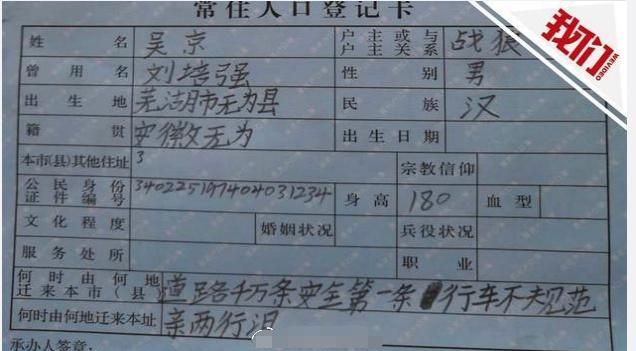 常住人口登记卡
我们 WEVIDEO
姓名 吴京 户主或与户主关系 战狼
曾用名 刘培强 性别 男
出生地 芜湖市无为县 民族 汉
籍贯 安徽无为 出生日期
本市(县)其他住址 3 宗教信仰
公民身份证件编号 340225197404031234 身高 180 血型
文化程度 婚姻状况 兵役状况
服务处所 职业
何时由何地迁来本市(县) 道路千万条安全第一条 行车不规范
何时由何地迁来本址 亲两行泪
承办人签章: